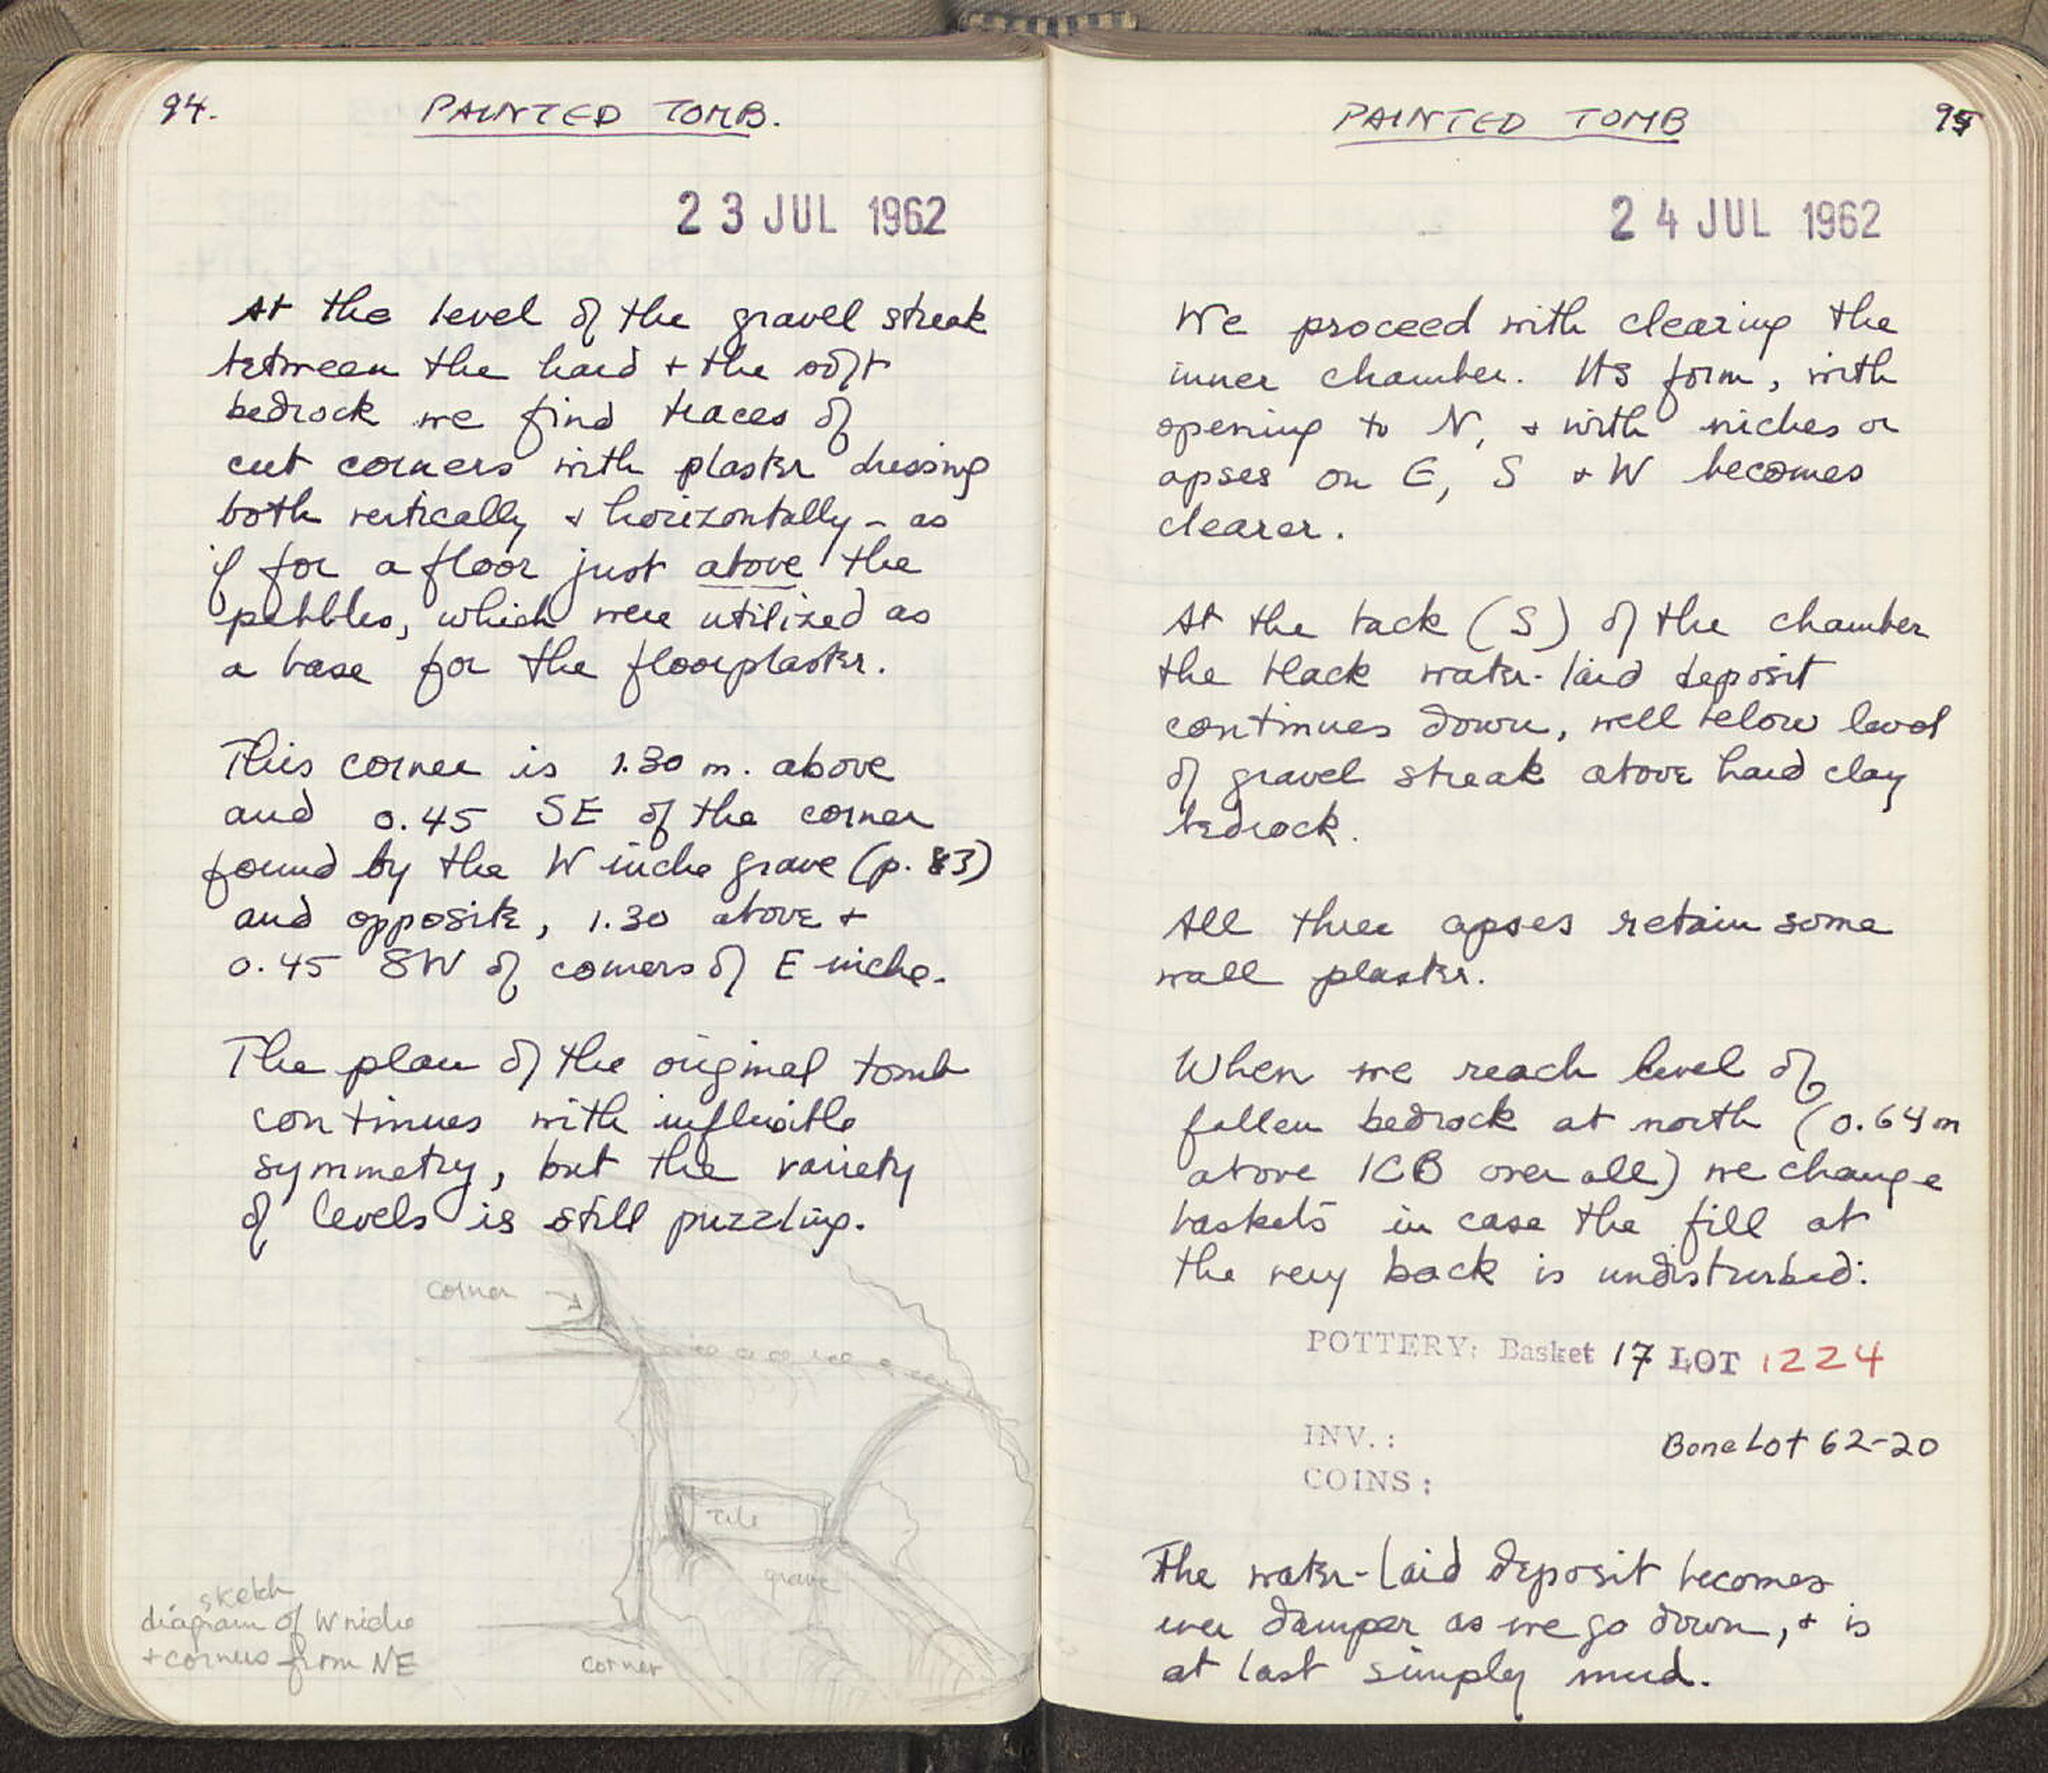 94.
PAINTED TOMB.
23 JUL 1962
At the level of the gravel streak
between the hard + the soft
bedrock we find traces of
cut corners with plaster dressing
both vertically + horizontally - as
if for a floor just above the
pebbles, which were utilized as
a base for the floorplaster.
This corner is 1.30 m. above
and 0.45 SE of the corner
found by the W niche grave (p. 83)
and opposite, 1.30 above +
0.45 SW of corners of E niche.
The plan of the original tomb
continues with inflexible
symmetry, but the variety
of levels is still puzzling.
corner
Tile
grave
corner
sketch
diagram of W niche
+ corners from NE
PAINTED TOMB
95
24 JUL 1962
We proceed with clearing the
inner chamber. Its form, with
opening to N, + with niches or
apses on E, S + W becomes
clearer.
At the back (S) of the chamber
the black water-laid deposit
continues down, well below level
of gravel streak above hard clay
bedrock.
All three apses retain some
wall plaster.
When we reach level of
fallen bedrock at north (0.64 m
above ICB over all) we change
baskets in case the fill at
the very back is undisturbed:
POTTERY: Basket 17 LOT 1224
INV.:
Bone Lot 62-20
COINS:
The water-laid deposit becomes
ever damper as we go down, + is
at last simply mud.